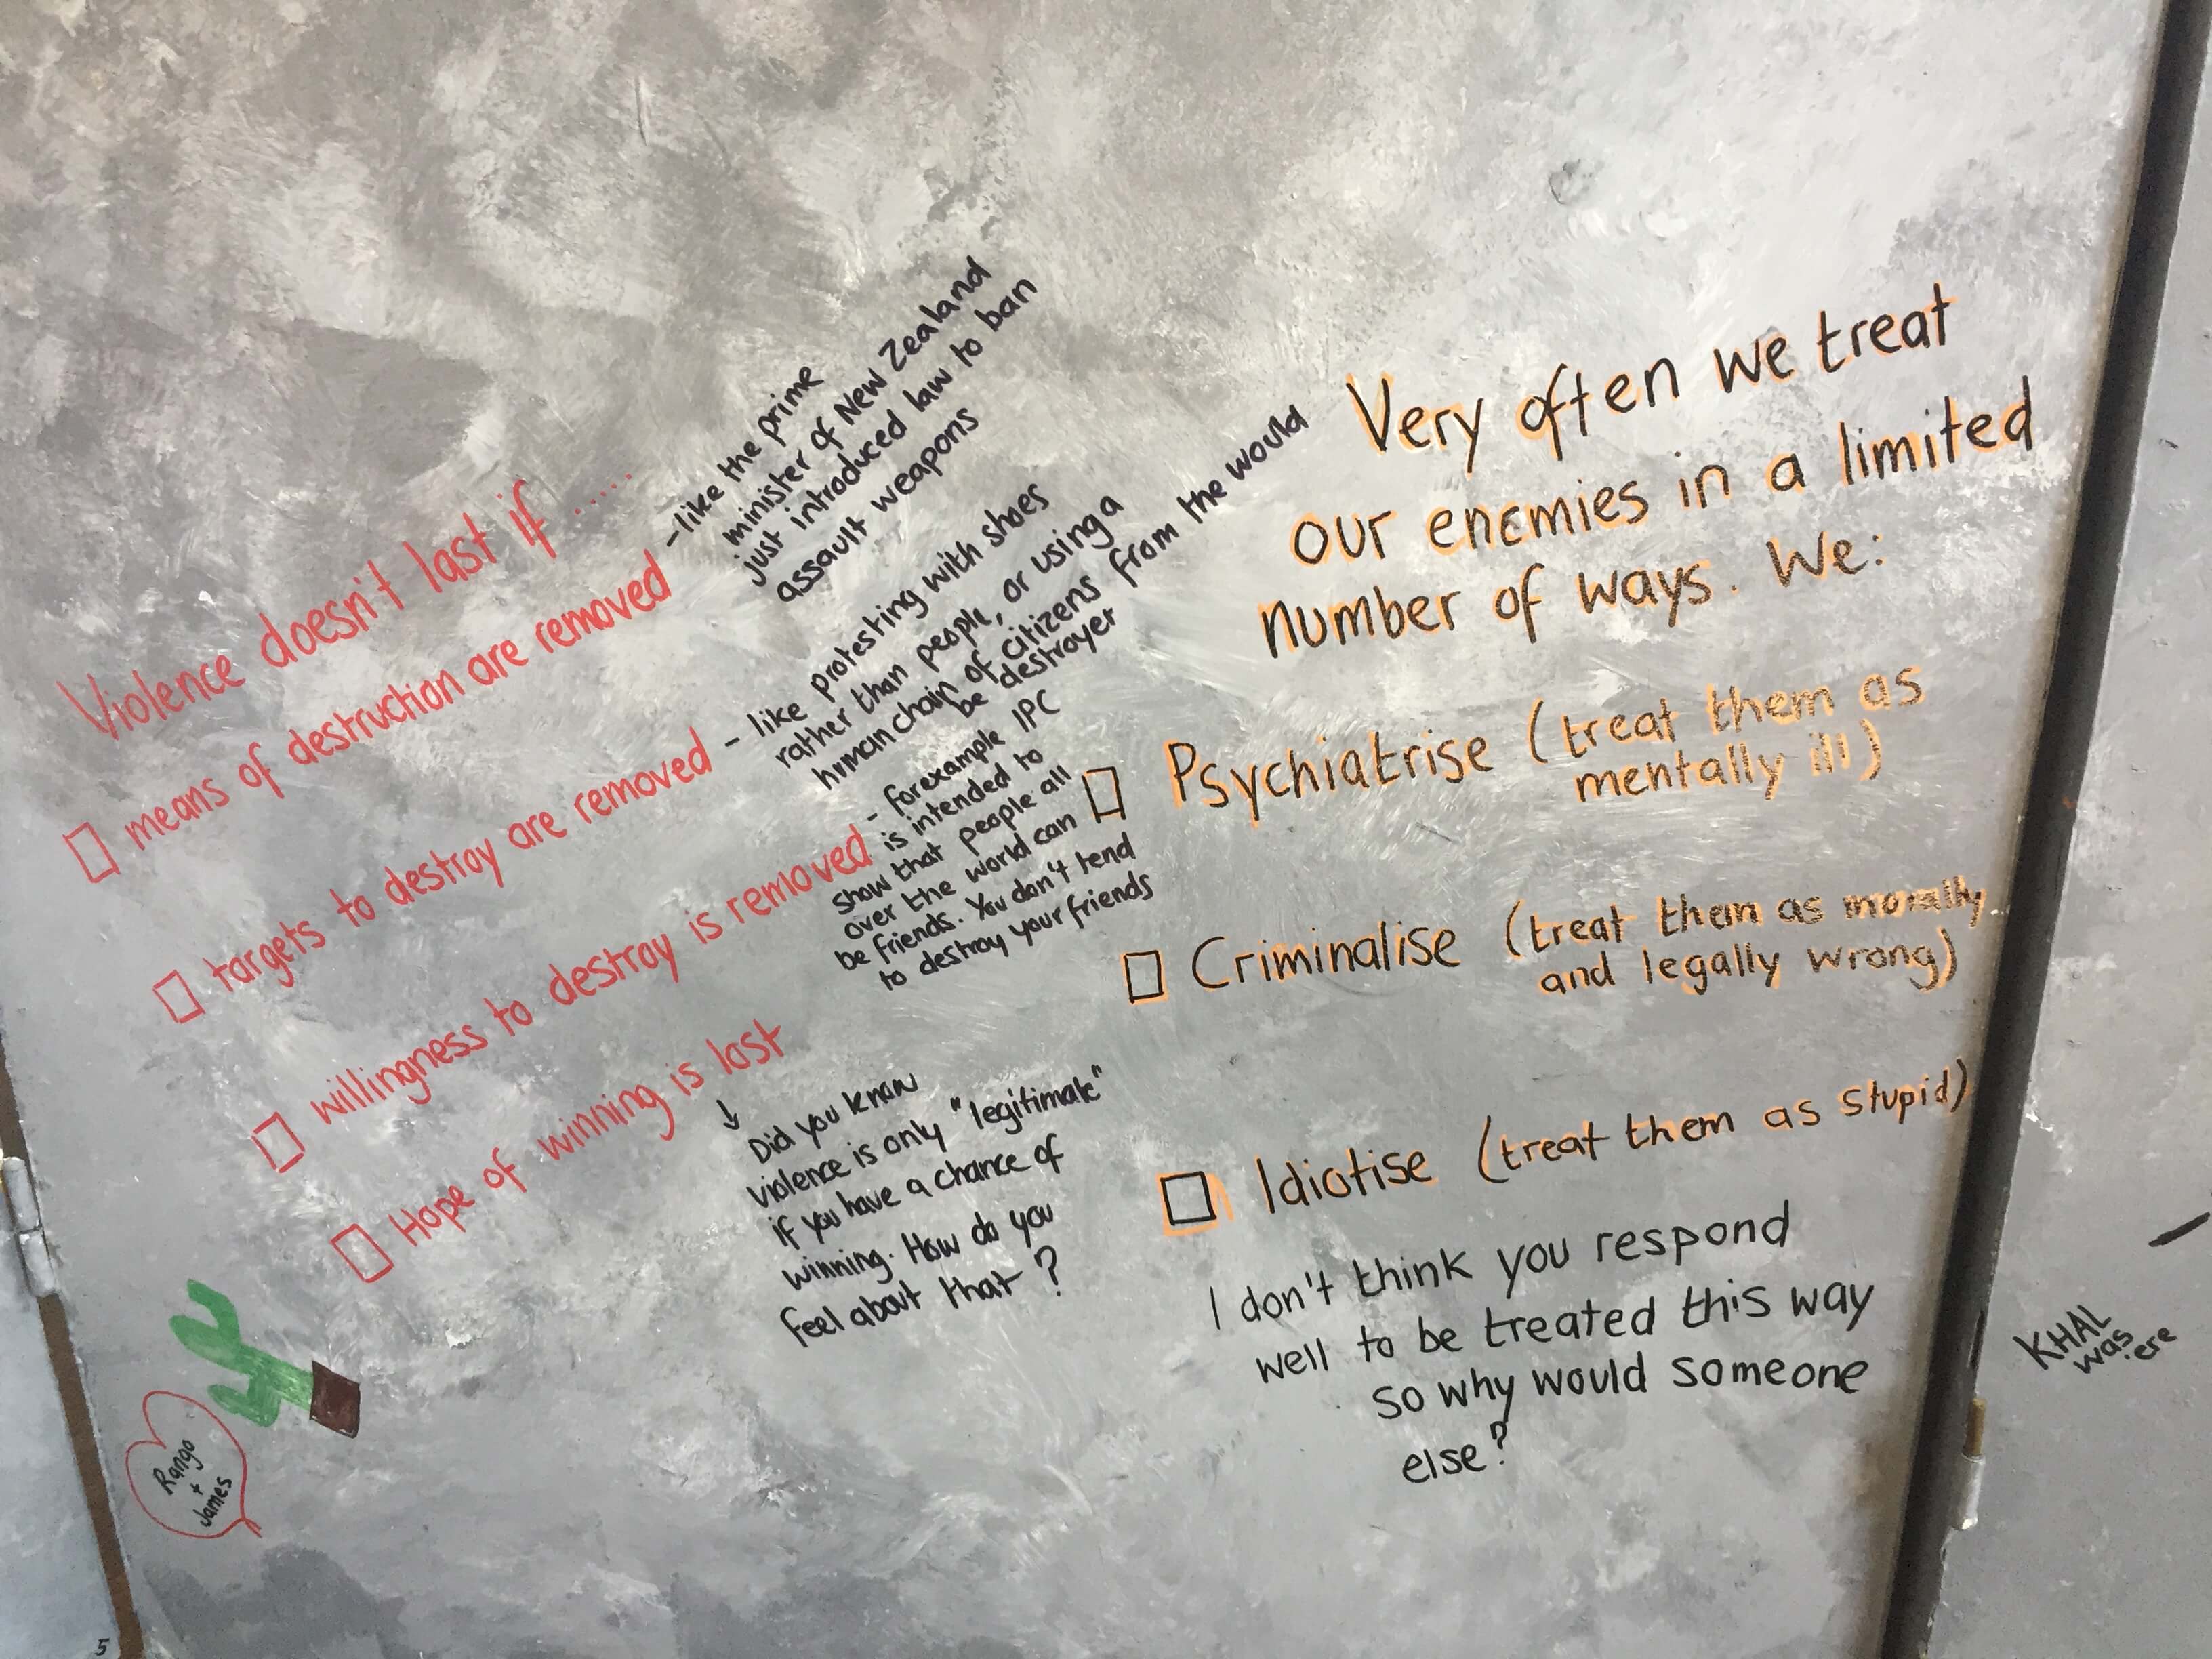 Violence doesn't last if ......
means of destruction are removed
- like the prime
minister of New Zealand
just introduced law to ban
assault weapons
targets to destroy are removed
- like protesting with shoes
rather than people, or using a
human chain of citizens from the would
be destroyer
willingness to destroy is removed
- forexample IPC
is intended to
show that people all
over the world can
be friends. You don't tend
to destroy your friends
Hope of winning is lost
↓
Did you know
violence is only "legitimate"
if you have a chance of
winning. How do you
feel about that?
Very often we treat
our enemies in a limited
number of ways. We:
Psychiatrise (treat them as
mentally ill)
Criminalise (treat them as morally
and legally wrong)
Idiotise (treat them as stupid)
I don't think you respond
well to be treated this way
so why would someone
else?
Rango
+
James
KHAL
was
'ere
5